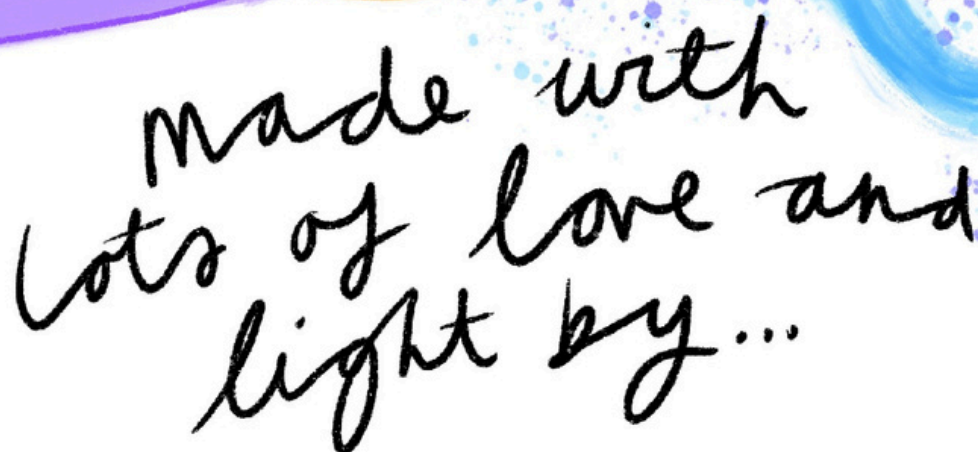 made with
lots of love and
light by...